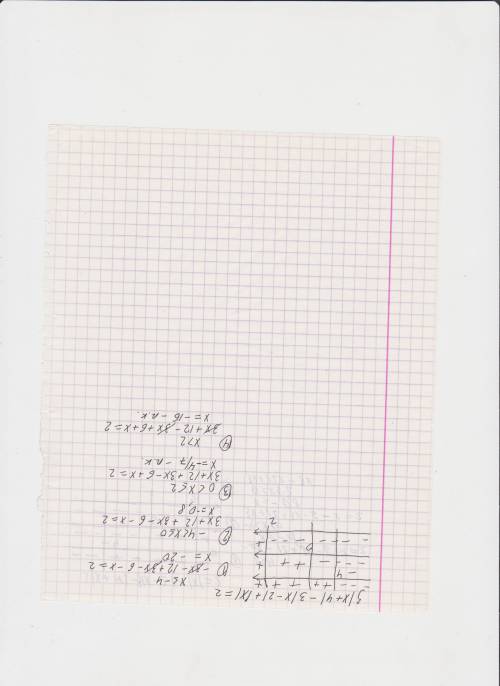 3|x+4| - 3|x-2| + |x| = 2
- - - | + + | + + + | +
-4
- - - | - - | + + + | +
0
- - - | - - | - - - | +
2
① x ≤ -4
-3x - 12 + 3x - 6 - x = 2
x = -20
② -4 < x ≤ 0
3x + 12 + 3x - 6 - x = 2
x = -0,8
③ 0 < x ≤ 2
3x + 12 + 3x - 6 + x = 2
x = -4/7 - п.к
④ x > 2
3x + 12 - 3x + 6 + x = 2
x = -16 - п.к.